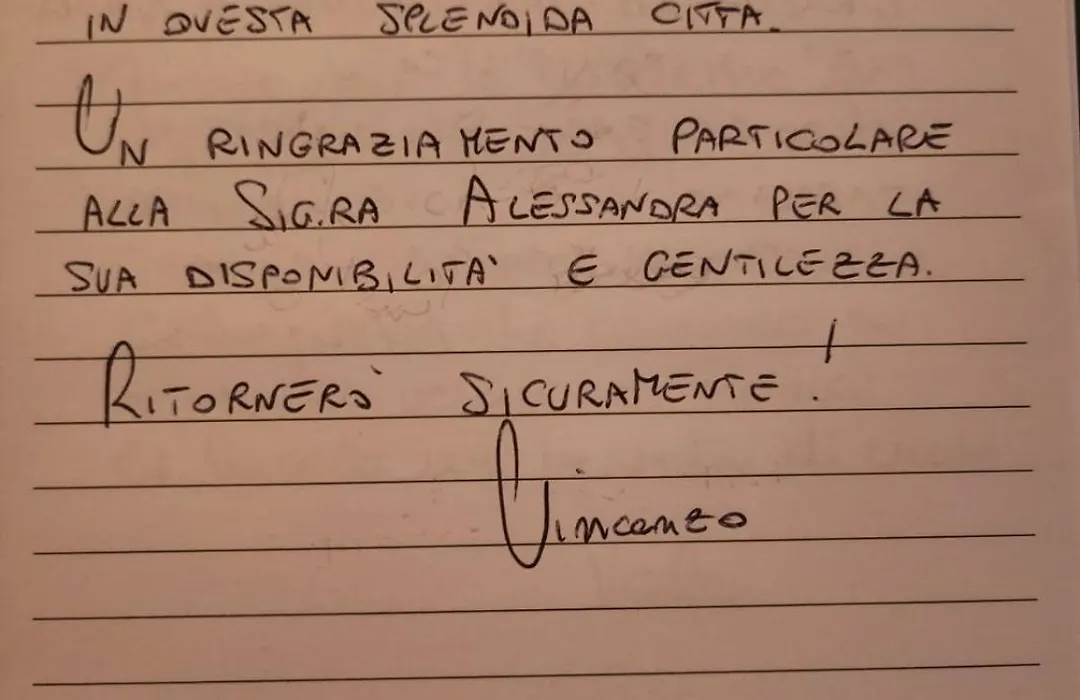 IN QUESTA SPLENDIDA CITTA.
UN RINGRAZIAMENTO PARTICOLARE
ALLA SIG.RA ALESSANDRA PER LA
SUA DISPONIBILITA' E GENTILEZZA.
RITORNERO' SICURAMENTE!
Vincenzo